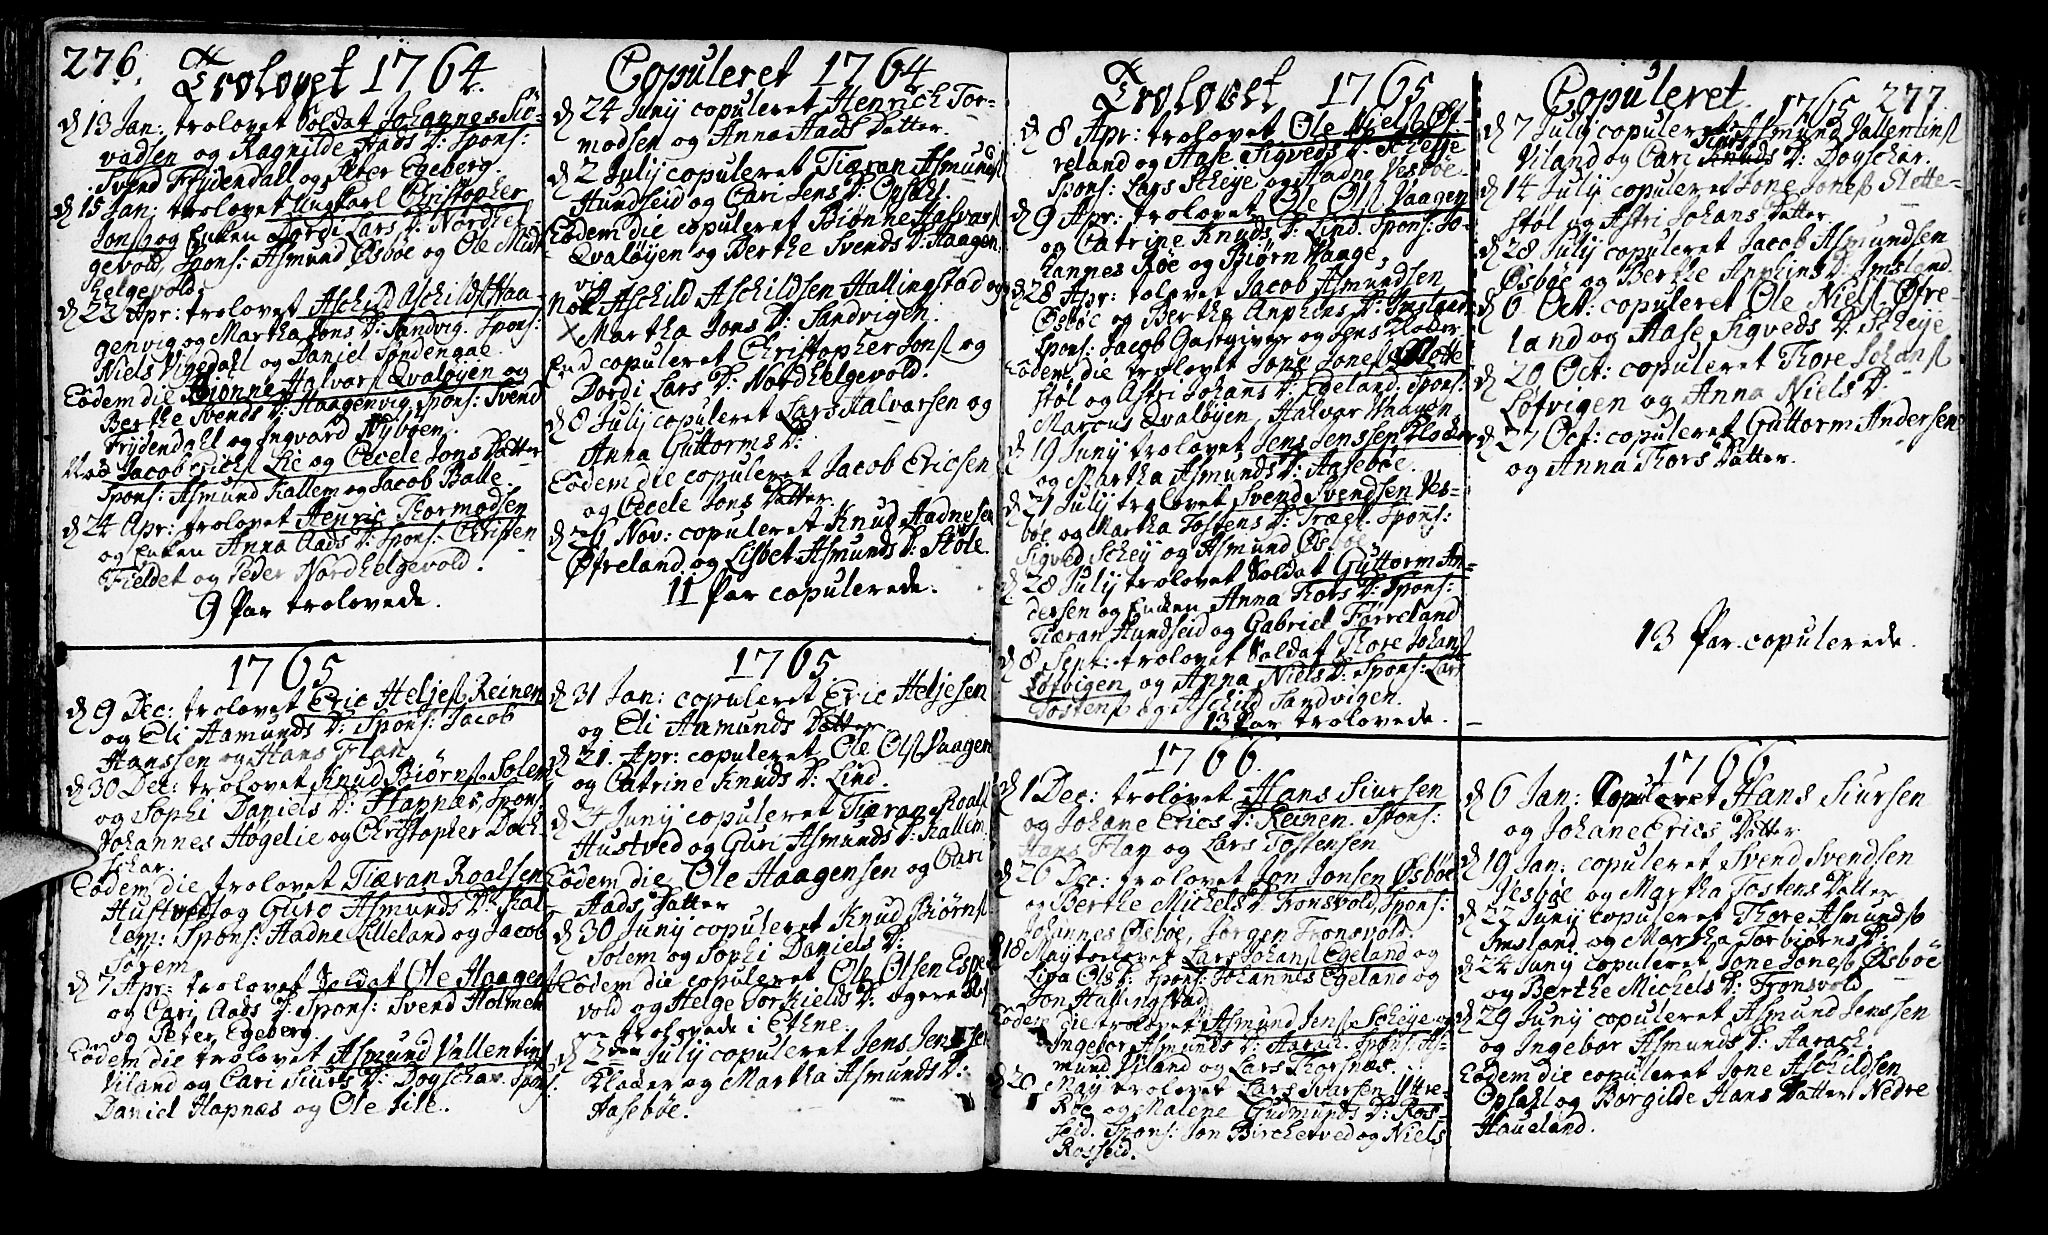 276.
Trolovet 1764.
d 13 Jan: trolovet Soldat Johannes Siø-
vadsen og Ragnilde Aads D: Spons:
Svend Frydendall og Peter Egeberg.
d 15 Jan: trolovet Ungkarl Christopher
Jons og Enken Dordi Lars D: Nordhel-
gevold, Spons: Asmund Øsbøe og Ole Midt
helgevold.
d 23 Apr: trolovet Aschild Aschilds Haa-
genvig og Martha Jons D: Sandvig. Spons:
Niels Vigedall og Daniel Søndenaae.
Eodem die Biønne Halvars Qvaløyen og
Berthe Svends D: Haagenvig, Spons: Svend
Frydendall og Ingvard Nybøen.
Nok Jacob Erichs Lie og Cecele Jons Datter
Spons: Asmund Kallem og Jacob Balle.
d 24 Apr: trolovet Henric Thormodsen
og Enken Anna Aads D: Spons: Christen
Fieldet og Peder Nordhelgevold.
9 Par trolovede.
1765
d 9 Dec: trolovet Eric Heljes Reinen
og Eli Aamunds D: Spons: Jacob
Hanssen og Hans Flan
d 30 Dec: trolovet Knud Biørns Solem
og Sophi Daniels D: Hapnæs, Spons:
Johannes Høgelie og Christopher Doch-
schar.
Eodem die trolovet Tiæran Roalsen
Hustved og Guro Asmunds D: Kal-
lem: Spons: Aadne Lilleland og Jacob
Sørem
d 7 Apr: trolovet Soldat Ole Haagens
og Cari Aads D: Spons: Svend Holmen
og Peter Egeberg.
Eodem die trolovet Asmund Vallentins
Viland og Cari Siurs D: Dogschar. Spons:
Daniel Hapnæs og Ole ibid.
Copuleret 1764
d 24 Junij copuleret Henrich Tor-
modsen og Anna Aads Datter.
d 2 Julij copuleret Tiæran Asmunds
Hundseid og Cari Jens D: Opsal.
Eodem die copuleret Biønne Halvars
Qvaløyen og Berthe Svends D: Haagen
vig
Nok Aschild Aschildsen Hallingstad og
Martha Jons D: Sandvigen.
End copuleret Christopher Jons og
Dordi Lars D: Nordhelgevold.
d 8 Julij copuleret Lars Halvarsen og
Anna Guttorms D:
Eodem die copuleret Jacob Ericsen
og Cecele Jons Datter.
d 26 Nov: copuleret Knud Aadnesen
Øfreland og Lisbet Asmunds D: Støle.
11 Par copulerede.
1765
d 31 Jan: copuleret Eric Heljesen
og Eli Aamunds Datter
d 21. Apr: copuleret Ole Ols Vaagen
og Catrine Knuds D: Lind.
d 24 Junij copuleret Tiæran Roals
Hustved og Guri Asmunds D: Kallem.
Eodem die Ole Haagensen og Cari
Aads Datter
d 30 Junij copuleret Knud Biørns
Solem og Sophi Daniels D:
Eodem die copuleret Ole Olsen Espe
vold og Helge Torkields D:
re trolovede i Ethne.
d 2den Julij copuleret Jens Jenssen
Kloder og Martha Asmunds D:
Aasebøe.
Trolovet 1765
d 8 Apr: trolovet Ole Niels Øf-
reland og Aase Sigveds D: Scheije
Spons: Lars Scheije og Aadne Vesbøe
d 9 Apr: trolovet Ole Ols Vaagen
og Catrine Knuds D: Lind. Spons: Jo-
hannes Røe og Biørn Hauge.
d 28 Apr: tolovet Jacob Asmundsen
Øsbøe og Berthe Anphins D: Imsland
Spons: Jacob Gastgiver og Jens Kloder
Eodem die trolovet Jone Jones Slotte
støl og Astri Johans D: Egeland. Spons:
Marcus Qvaløyen, Halvar Vaagen.
d 19 Junij trolovet Jens Jenssen Kloder
og Martha Asmunds D: Aasebøe.
d 21 Julij trolovet Svend Svendsen Ves-
bøe og Martha Tostens D: Træet. Spons:
Sigved Scheij og Asmund Øsbøe.
d 28 Julij trolovet Soldat Guttorm An-
dersen og Enken Anna Thors D: Spons:
Tiæran Hundseid og Gabriel Førreland
d 8 Sept: trolovet Soldat Thore Johans
Løfvigen og Anna Niels D: Spons: Lars
Tostens og Aschild Sandvigen.
13 Par trolovede.
1766.
d 1 Dec: trolovet Hans Siursen
og Johane Erics D: Reinen. Spons:
Hans Flan og Lars Tostensen
d 26 Dec: trolovet Jon Jonsen Øsbøe
og Berthe Michels D: Tronsvold, Spons:
Johannes Øsbøe, Jørgen Tronsvold.
d 18 Maij trolovet Lars Johans Egeland og
Liva Ols D: Spons: Johannes Egeland og
Jon Hallingstad
Eodem die trolovet Asmund Jens Scheije og
Ingebor Asmunds D: Aarach. Spons: As-
mund Viland og Lars Thorsnæs.
d 20 Maij trolovet Lars Siursen Yttre-
Røe og Malene Gudmunds D: Ros-
seid. Spons: Jon Birchetved og Niels
Rosseid.
Copuleret 1765 277.
d 7 Julij copuleret Asmund Vallentins
Siurs
Viland og Cari Knuds D: Dogschar.
d 14 Julij copuleret Jone Jones Slotte-
støl og Astri Johans Datter
d 28 Julij copuleret Jacob Asmundsen
Øsbøe og Berthe Anphins D: Imsland.
d 6 Oct: copuleret Ole Niels Øfre-
land og Aase Sigveds D: Scheije
d 20 Oct: copuleret Thore Johans
Løfvigen og Anna Niels D:
d 27 Oct: copuleret Guttorm Andersen
og Anna Thors Datter.
13 Par copulerede.
1766
d 6 Jan: Copuleret Hans Siursen
og Johane Erics Datter
d 19 Jan: copuleret Svend Svendsen
Vesbøe og Martha Tostens Datter
d 22 Junij copuleret Thore Asmunds
Imsland og Martha Torbiørns D:
d 24 Junij copuleret Jone Jones Øsbøe
og Berthe Michels D: Tronsvold
d 29 Junij copuleret Asmund Jenssen
og Ingebor Asmunds D: Aarach.
Eodem die copuleret Jone Aschildsen
Opsall og Borgilde Hans Datter Nedre
Haueland.